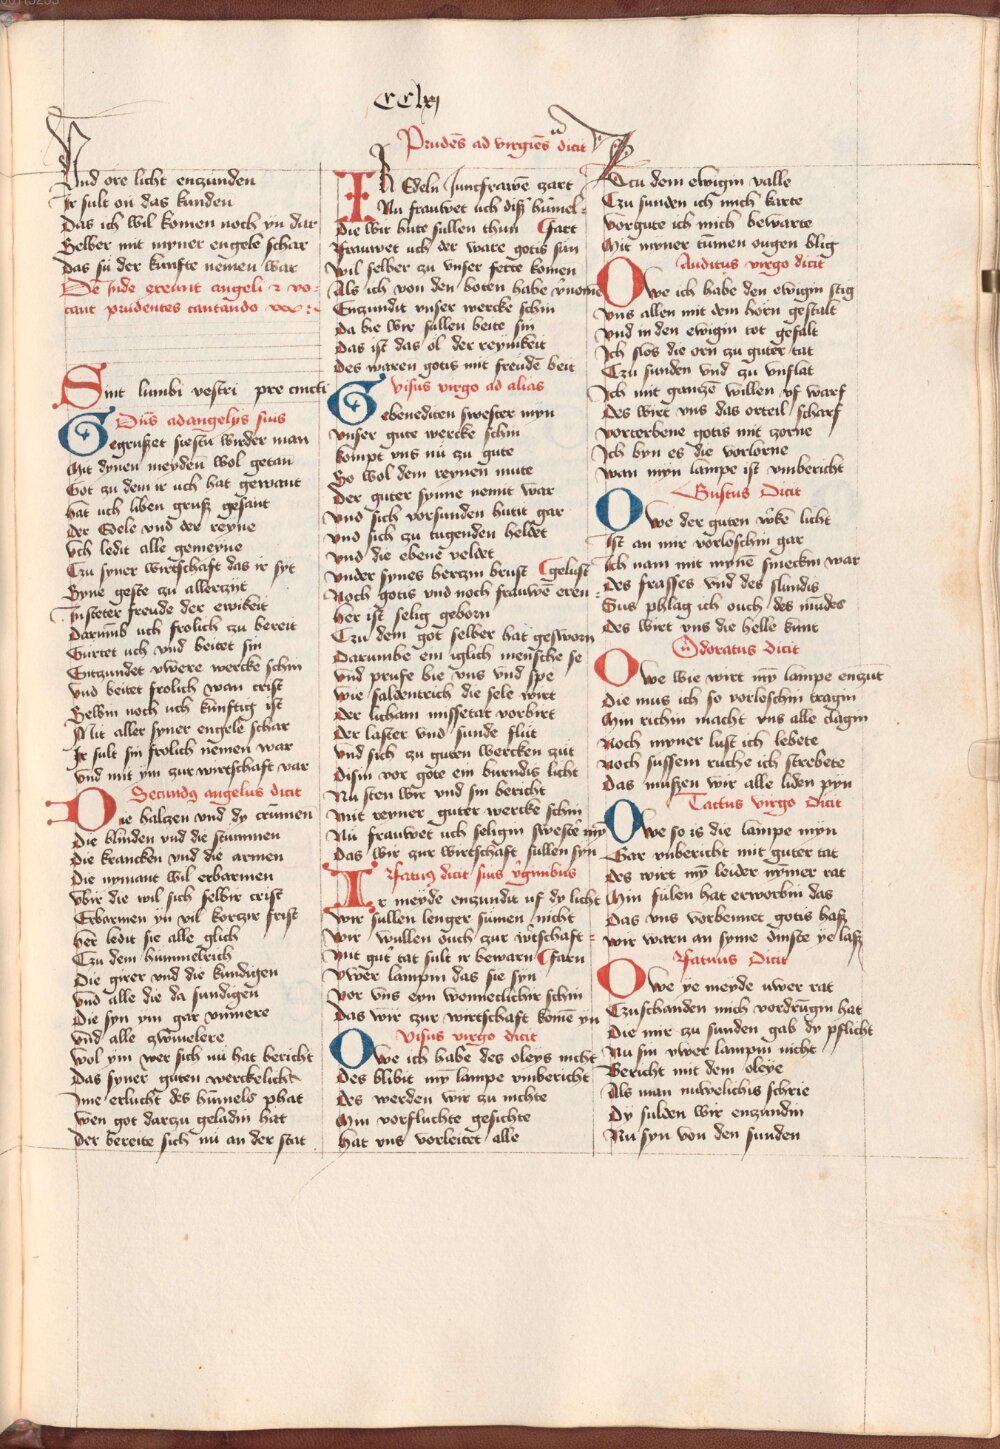 CClxj
Vnd ore licht enczunden
Ir sult on das kunden
Das ich wil komen noch yn dar
Selber mit myner engele schar
Das sű der kunfte nemen war
De inde exeant angeli ⁊ vo-
cant prudentes cantando
Sint lumbi vestri precincti
Dn̄s ad angelos suos
Gegrußet siestu wirder man
Mit dynen meyden wol getan
Got zu dem ir uch hat gewant
Hat uch liben gruß gesant
Der Edele vnd der reyne
Vch ledit alle gemeyne
Czu syner wirtschaft das ir syt
Syne geste zu allerzijt
In steter freude der ewikeit
Darumb uch frolich czu bereit
Gurtet uch vnd beitet sin
Entzundet vwere wercke schin
Vnd beitet frolich wan crist
Selbin noch uch kunftig ist
Mit aller syner engele schar
Ir sult sin frolich nemen war
Vnd mit ym zur wirtschaft var
Secundus angelus dicit
Die halczen vnd dy crumen
Die blinden vnd die stummen
Die krancken vnd die armen
Die nymant wil erbarmen
Vbir die wil sich selbir crist
Erbarmen yn vil korczir frist
Her ledit sie alle glich
Czu dem hummelrich
Die girer vnd die kundigen
Vnd alle die da sundigen
Die syn ym gar vnmere
Vnd alle zwiuelere
Wol ym wer sich nu hat bericht
Das syner guten wercke licht
Ime erlucht des hummels phat
Wen got darczu geladin hat
Der bereite sich nu an der stat
Prudēs ad virgīes dicit
Ir Edeln Juncfrawē zart
Nu frauwet uch diß hůmel-
Die wir hute sullen thun ¶fart
Frauwet uch der ware gotis sun
Wil selber zu vnser ferte komen
Als ich von den boten habe v̓nomē
Enzundit vnser wercke schin
Da bie wir sullen beite sin
Das ist das ol der reynikeit
Des waren gotis mit freudē beit
Visus virgo ad alias
Gebenediten swester myn
Vnser gute wercke schin
Kompt vns nu zu gute
So wol dem reynen mute
Der guter synne nemit war
Vnd sich vorsunden hutit gar
Vnd sich zu tugenden heldet
Vnd die ebene veldet
Vnder synes hertzin brust ¶gelust
Noch gotis vnd noch frauwē eren
Her ist selig geborn
Czu dem got selber hat gesworn
Darumbe ein iglich mensche se
Vnd prufe bie vns vnd spe
Wie saldentrich die sele wirt
Der licham missetat vorbirt
Der laster vnd sunde flut
Vnd sich zu guten wercken zut
Disin vor gote ein burndis licht
Nu sten wir vnd sin bericht
Mit reyner guter wercke schin
Nu frauwet uch seligin swestē my
Das wir zur wirtschaft sullen syn
Fatuus dicit suis v̓ginibus
Ir meyde enzundit uf dy licht
Wir sullen lenger sumen nicht
Wir wullen ouch zur w̓tschaft
Mit gut̓ tat sult ir bewarn ¶farn
Vwer lampin das sie syn
Vor vns eyn wonneclichir schin
Das wir zur wirtschaft komē yn
Visus virgo dicit
Owe ich habe des oleys nicht
Des blibit my lampe vmbericht
Des werden wir zu nichte
Min vorfluchte gesichte
Hat vns vorleitet alle
Tcu dem ewigin valle
Czu sunden ich mich karte
Vorgute ich mich bewarte
Mit myner tumen ougen blig
Auditus virgo dicit
Owe ich habe den ewigin stig
Vns allen mit dem horn gestalt
Vnd in den ewigin tot gefalt
Ich slos die orn zu guter tat
Czu sunden vnd zu vnflat
Ich mit ganzē willen vf warf
Des wirt vns das orteil scharf
Vorterbene gotis mit zorne
Ich byn es die vorlorne
Wan myn lampe ist vmbericht
Gustus Dicit
Owe der guten w̓kē licht
Ist an mir vorloschin gar
Ich nam mit mynē smeckin war
Des frasses vnd des slundis
Sus phlag ich ouch des mudes
Des wirt vns die helle kunt
Odoratus dicit
Owe wie wirt my lampe enzut
Die mus ich so vorloschin tragin
Min richin macht vns alle clagin
Noch myner lust ich lebete
Noch sussem ruche ich strebete
Das mussen wir alle liden pyn
Tactus virgo Dicit
Owe so is die lampe myn
Gar vnbericht mit guter tat
Des wirt my leider nymer rat
Min fulen hat erworbin das
Das vns vorbennet gotis haß
Wir warn an syme dinste ye laß
Fatuus Dicit
Owe ye meyde uwer rat
Czuschanden mich vordrungin hat
Die mir zu sunden gab dy pflicht
Nu sin vwer lampin nicht
Bericht mit dem oleye
Als man nuwelichis schrie
Dy sulden wir enzundin
Nu syn von den sunden